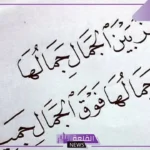 الجمال جمالها
جمالها فوق الجمال
القلعة
NEWS